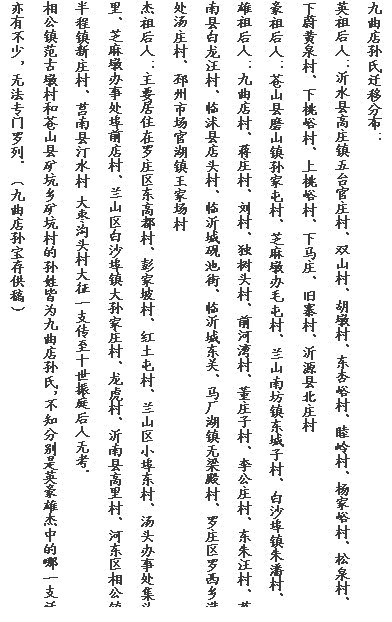 九曲店孙氏迁移分布：
英祖后人：沂水县高庄镇五台官庄村、双山村、胡墩村、东杏峪村、睦岭村、杨家峪村、松泉村、
下蔚黄泉村、下桃峪村、上桃峪村、下马庄、旧寨村、沂源县北庄村
豪祖后人：苍山县磨山镇孙家屯村、芝麻墩办毛屯村、兰山南坊镇东城子村、白沙埠镇朱潘村、
雄祖后人：九曲店村、蒋庄村、刘村、独树头村、前河湾村、董庄子村、李公庄村、东朱汪村、
南县白龙汪村、临沭县店头村、临沂城砚池街、临沂城东关、马厂湖镇无梁殿村、罗庄区罗西乡
处汤庄村、邳州市场官湖镇王家场村
杰祖后人：主要居住在罗庄区东高都村、彭家坡村、红土屯村、兰山区小埠东村、汤头办事处集
里、芝麻墩办事处埠前店村、兰山区白沙埠镇大孙家庄村、龙虎村、沂南县高里村、河东区相公镇
半程镇新庄村、莒南县汀水村 大枣沟头村大征一支传至十世振庭后人无考.
相公镇范古墩村和苍山县矿坑乡矿坑村的孙姓皆为九曲店孙氏,不知分别是英豪雄杰中的哪一支
亦有不少，无法专门罗列.（九曲店孙宝存供稿）